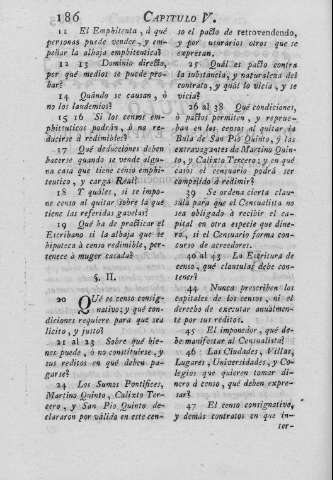 186 CAPITULO V.
11 El Emphitenta, á qué
personas puede vender, y em-
peñar la alhaja emphiteutica?
12 13 Dominio directo,
por qué medios se puede pro-
bar?
14 Quándo se causan, ó
no los laudemios?
15 16 Si los censos em-
phiteuticos podrán, ó no re-
ducirse á redimibles?
17 Qué deducciones deben
hacerse quando se vende algu-
na casa que tiene censo emphi-
teutico, y carga Real?
18 Y quáles, si se impo-
ne censo al quitar sobre la que
tiene las referidas gavelas?
19 Qué ha de practicar el
Escribano si la alhaja que se
hipoteca à censo redimible, per-
tenece à muger casada?
§. II.
20 QUé es censo consig-
nativo; y qué con-
diciones requiere para que sea
licito, y justo?
21 al 23 Sobre qué bie-
nes puede, ó no constituirse, y
sus reditos en qué deben pa-
garse?
24 Los Sumos Pontifices,
Martino Quinto, Calixto Ter-
cero, y San Pio Quinto de-
clararon por válido en este cen-
so el pacto de retrovendendo,
y por usurarios otros que se
expresan.
25 Quál es pacto contra
la substancia, y naturaleza del
contrato, y quál lo vicia, y se
vicia?
26 al 38 Qué condiciones,
ó pactos permiten, y reprue-
ban en los censos al quitar la
Bula de San Pio Quinto, y las
extravagantes de Martino Quin-
to, y Calixto Tercero; y en qué
casos el censuario podrá ser
compelido á redimir?
39 Se ordena cierta clau-
sula para que el Censualista no
sea obligado á recibir el ca-
pital en otra especie que dine-
ro, si el Censuario forma con-
curso de acreedores.
40 al 43 La Escritura de
censo, qué clausulas debe con-
tener?
44 Nunca prescriben los
capitales de los censos, ni el
derecho de executar anualmen-
te por sus réditos.
45 El imponedor, qué de-
be manifestar al Censualista?
46 Las Ciudades, Villas,
Lugares, Universidades, y Co-
legios que quieren tomar di-
nero á censo, qué deben expre-
sar?
47 El censo consignativo,
y demás contratos en que in-
ter-